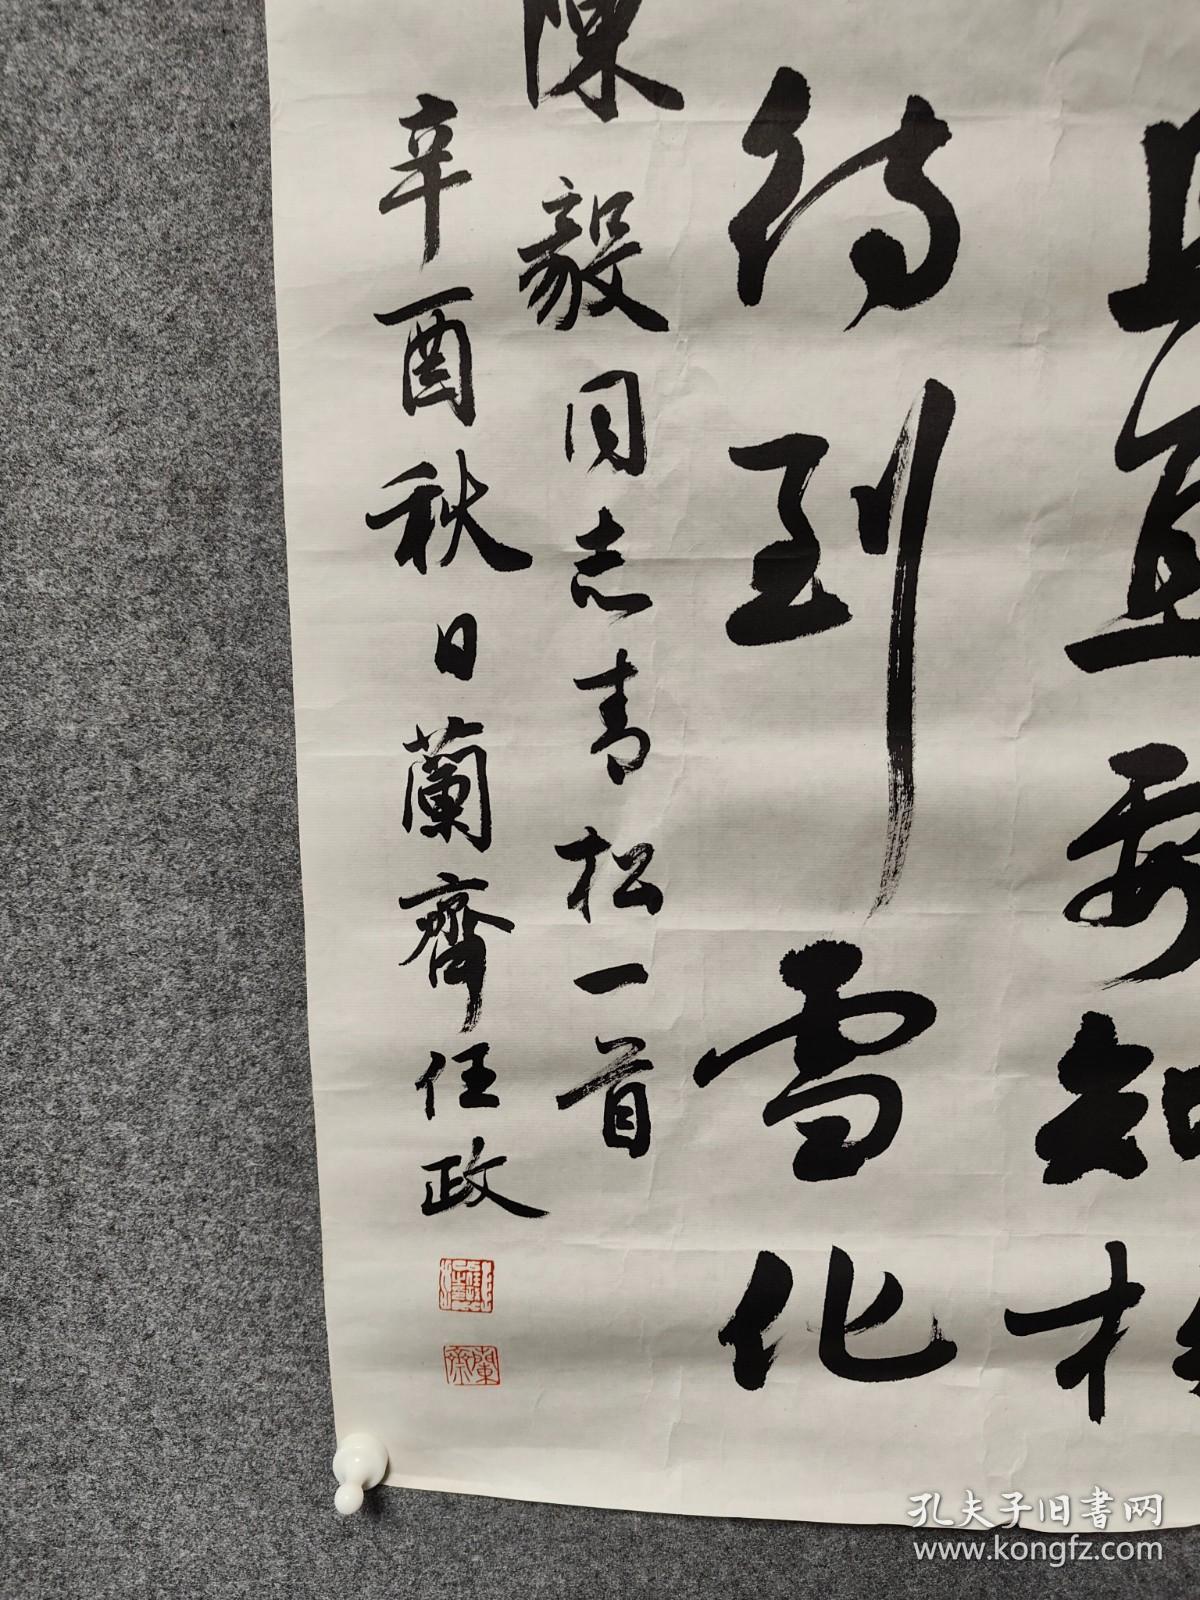 且直要知松
待到雪化
陳毅同志青松一首
辛酉秋日蘭齊任政
蘭齋
孔夫子旧書网
www.kongfz.com